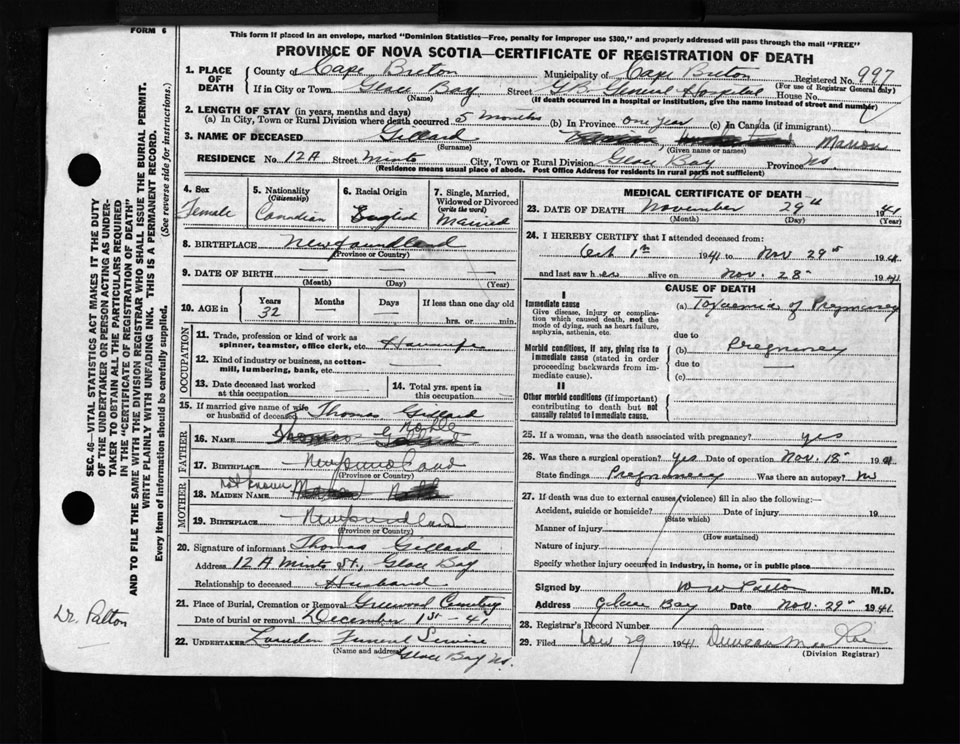 This form if placed in an envelope, marked "Dominion Statistics—Free, penalty for improper use $300," and properly addressed will pass through the mail "FREE"
FORM 6
PROVINCE OF NOVA SCOTIA—CERTIFICATE OF REGISTRATION OF DEATH
1. PLACE OF DEATH
County of Cape Breton Municipality of Cape Breton Registered No. 997
(For use of Registrar General only)
If in City or Town Glace Bay Street G.B. General Hospital House No.
(Name) (If death occurred in a hospital or institution, give the name instead of street and number)
2. LENGTH OF STAY (in years, months and days)
(a) In City, Town or Rural Division where death occurred 5 months (b) In Province one year (c) In Canada (if immigrant)
3. NAME OF DECEASED Gillard Marion
(Surname) (Given name or names)
RESIDENCE No. 12A Street Minto City, Town or Rural Division Glace Bay Province NS
(Residence means usual place of abode. Post Office Address for residents in rural parts not sufficient)
4. Sex
Female
5. Nationality (Citizenship)
Canadian
6. Racial Origin
English
7. Single, Married, Widowed or Divorced (write the word)
Married
8. BIRTHPLACE Newfoundland
(Province or Country)
9. DATE OF BIRTH — — —
(Month) (Day) (Year)
10. AGE in Years Months Days If less than one day old
32 — — hrs. or min.
OCCUPATION
11. Trade, profession or kind of work as spinner, teamster, office clerk, etc. Housewife
12. Kind of industry or business, as cotton-mill, lumbering, bank, etc. —
13. Date deceased last worked at this occupation
14. Total yrs. spent in this occupation
15. If married give name of wife or husband of deceased Thomas Gillard
FATHER
16. NAME Noble
17. BIRTHPLACE Newfoundland
(Province or Country)
MOTHER
18. MAIDEN NAME Not Known
19. BIRTHPLACE Newfoundland
(Province or Country)
20. Signature of informant Thomas Gillard
Address 12 A Minto St., Glace Bay
Relationship to deceased Husband
21. Place of Burial, Cremation or Removal Greenwood Cemetery
Date of burial or removal December 1st - 41
22. UNDERTAKER Funeral Service
(Name and address) Glace Bay NS.
MEDICAL CERTIFICATE OF DEATH
23. DATE OF DEATH November 29th 1941
(Month) (Day) (Year)
24. I HEREBY CERTIFY that I attended deceased from:
Oct 1st 1941 to Nov 29th 1941
and last saw her alive on Nov. 28th 1941
CAUSE OF DEATH
I
Immediate cause
Give disease, injury or complication which caused death, not the mode of dying, such as heart failure, asphyxia, asthenia, etc.
(a) Toxaemia of Pregnancy
due to
Morbid conditions, if any, giving rise to immediate cause (stated in order proceeding backwards from immediate cause).
(b) Pregnancy
due to
(c) —
II
Other morbid conditions (if important) contributing to death but not causally related to immediate cause.
25. If a woman, was the death associated with pregnancy? yes
26. Was there a surgical operation? Yes Date of operation Nov. 18th 1941
State findings Pregnancy Was there an autopsy? No
27. If death was due to external causes (violence) fill in also the following:—
Accident, suicide or homicide? Date of injury 19
(State which)
Manner of injury
(How sustained)
Nature of injury
Specify whether injury occurred in industry, in home, or in public place
Signed by W W Patton M.D.
Address Glace Bay Date Nov. 29th 1941
28. Registrar's Record Number
29. Filed Nov 29 1941 Duncan MacRae
(Division Registrar)
SEC. 46—VITAL STATISTICS ACT MAKES IT THE DUTY
OF THE UNDERTAKER OR PERSON ACTING AS UNDER-
TAKER TO OBTAIN ALL THE PARTICULARS REQUIRED
IN THE "CERTIFICATE OF REGISTRATION OF DEATH"
AND TO FILE THE SAME WITH THE DIVISION REGISTRAR WHO SHALL ISSUE THE BURIAL PERMIT.
WRITE PLAINLY WITH UNFADING INK. THIS IS A PERMANENT RECORD.
Every item of information should be carefully supplied. (See reverse side for instructions.)
Dr. Patton